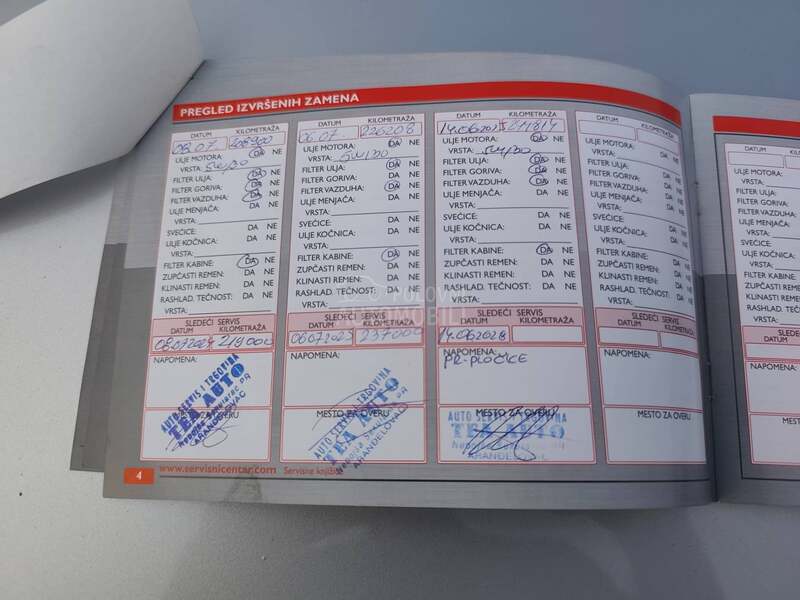 PREGLED IZVRŠENIH ZAMENA
DATUM KILOMETRAŽA
08.07
ULJE MOTORA: DA NE
VRSTA: 5W/30
FILTER ULJA: DA NE
FILTER GORIVA: DA NE
FILTER VAZDUHA: DA NE
ULJE MENJAČA: DA NE
VRSTA:
SVEĆICE: DA NE
ULJE KOČNICA: DA NE
VRSTA:
FILTER KABINE: DA NE
ZUPČASTI REMEN: DA NE
KLINASTI REMEN: DA NE
RASHLAD. TEČNOST: DA NE
VRSTA:
SLEDEĆI SERVIS
DATUM KILOMETRAŽA
219000
NAPOMENA:
AUTO SERVIS I TRGOVINA
TEA AUTO
ARANĐELOVAC
MESTO ZA OVERU
DATUM KILOMETRAŽA
06.07 226208
ULJE MOTORA: DA NE
VRSTA: 5W/30
FILTER ULJA: DA NE
FILTER GORIVA: DA NE
FILTER VAZDUHA: DA NE
ULJE MENJAČA: DA NE
VRSTA:
SVEĆICE: DA NE
ULJE KOČNICA: DA NE
VRSTA:
FILTER KABINE: DA NE
ZUPČASTI REMEN: DA NE
KLINASTI REMEN: DA NE
RASHLAD. TEČNOST: DA NE
VRSTA:
SLEDEĆI SERVIS
DATUM KILOMETRAŽA
237000
NAPOMENA:
MESTO ZA OVERU
AUTO SERVIS I TRGOVINA
TEA AUTO
ARANĐELOVAC
DATUM KILOMETRAŽA
ULJE MOTORA: DA NE
VRSTA: 5W/30
FILTER ULJA: DA NE
FILTER GORIVA: DA NE
FILTER VAZDUHA: DA NE
ULJE MENJAČA: DA NE
VRSTA:
SVEĆICE: DA NE
ULJE KOČNICA: DA NE
VRSTA:
FILTER KABINE: DA NE
ZUPČASTI REMEN: DA NE
KLINASTI REMEN: DA NE
RASHLAD. TEČNOST: DA NE
VRSTA:
SLEDEĆI SERVIS
DATUM KILOMETRAŽA
14.062026
NAPOMENA:
PR-PLOČICE
MESTO ZA OVERU
AUTO SERVIS I TRGOVINA
TEA AUTO
ARANĐELOVAC
DATUM KILOMETRAŽA
ULJE MOTORA: DA NE
VRSTA:
FILTER ULJA: DA NE
FILTER GORIVA: DA NE
FILTER VAZDUHA: DA NE
ULJE MENJAČA: DA NE
VRSTA:
SVEĆICE: DA NE
ULJE KOČNICA: DA NE
VRSTA:
FILTER KABINE: DA NE
ZUPČASTI REMEN: DA NE
KLINASTI REMEN: DA NE
RASHLAD. TEČNOST: DA NE
VRSTA:
SLEDEĆI SERVIS
DATUM KILOMETRAŽA
NAPOMENA:
MESTO ZA OVERU
DATUM
ULJE MOTORA:
VRSTA:
FILTER ULJA:
FILTER GORIVA:
FILTER VAZDUHA:
ULJE MENJAČA:
VRSTA:
SVEĆICE:
ULJE KOČNICA:
VRSTA:
FILTER KABINE:
ZUPČASTI REMEN:
KLINASTI REMEN:
RASHLAD. TEČNOST:
VRSTA:
SLEDEĆI
DATUM
NAPOMENA:
MESTO ZA
4 www.servisnicentar.com
POLOVNI
AUTOMOBILI